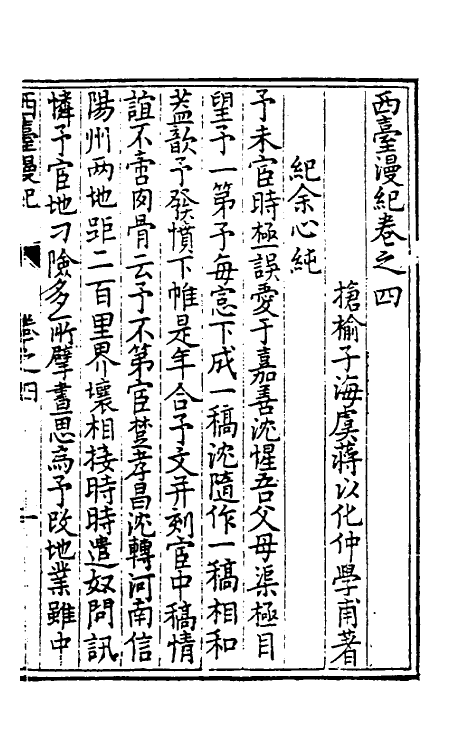 西臺漫紀卷之四
搶榆子海虞蔣以化仲學甫著
紀余心純
予未宦時極誤愛于嘉善沈惺吾父母渠極目
望予一第予每窓下成一稿沈隨作一稿相和
葢歆予發憤下帷是年合予文并刻宦中稿情
誼不啻肉骨云予不第宦楚孝昌沈轉河南信
陽州两地距二百里界壤相接時時遣奴問訊
憐予宦地刁險多所擘畫思為予改地業雖中
西臺漫紀
卷之四
一